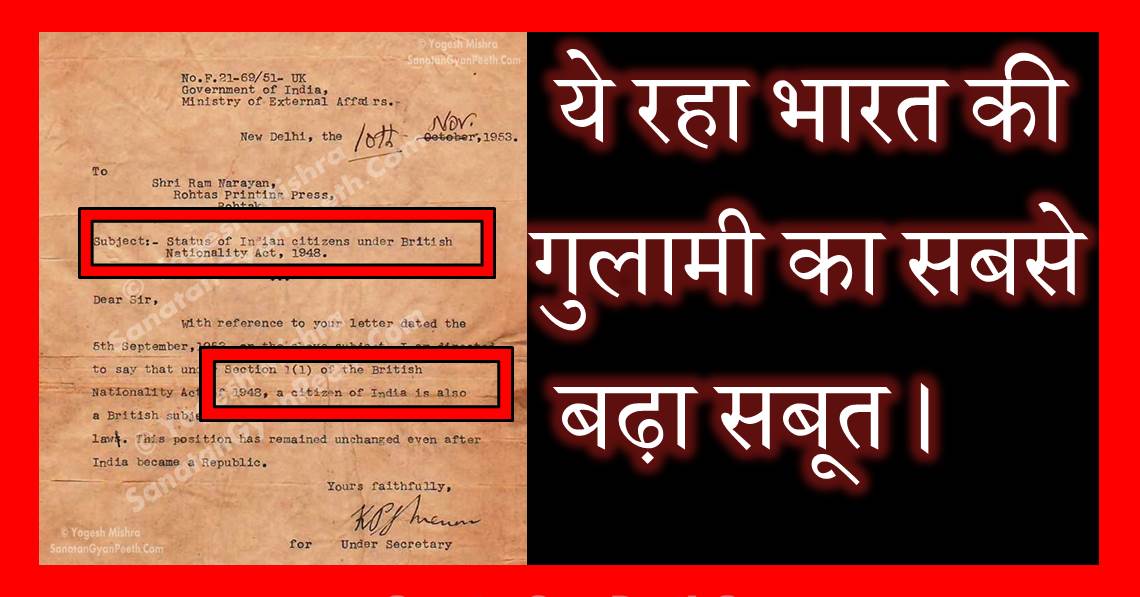 © Yogesh Mishra
SanatanGyanPeeth.Com
No.F.21-69/51- UK
Government of India,
Ministry of External Affairs.-
New Delhi, the 10th - Nov. October, 1953.
To
Shri Ram Narayan,
Rohtas Printing Press,
Rohtak
Subject:- Status of Indian citizens under British
Nationality Act, 1948.
...
Dear Sir,
With reference to your letter dated the
5th September, on the above subject, I am directed
to say that under Section 1(1) of the British
Nationality Act of 1948, a citizen of India is also
a British subj
law. This position has remained unchanged even after
India became a Republic.
Yours faithfully,
for Under Secretary
© Yogesh Mishra
SanatanGyanPeeth.Com
ये रहा भारत की
गुलामी का सबसे
बढ़ा सबूत ।